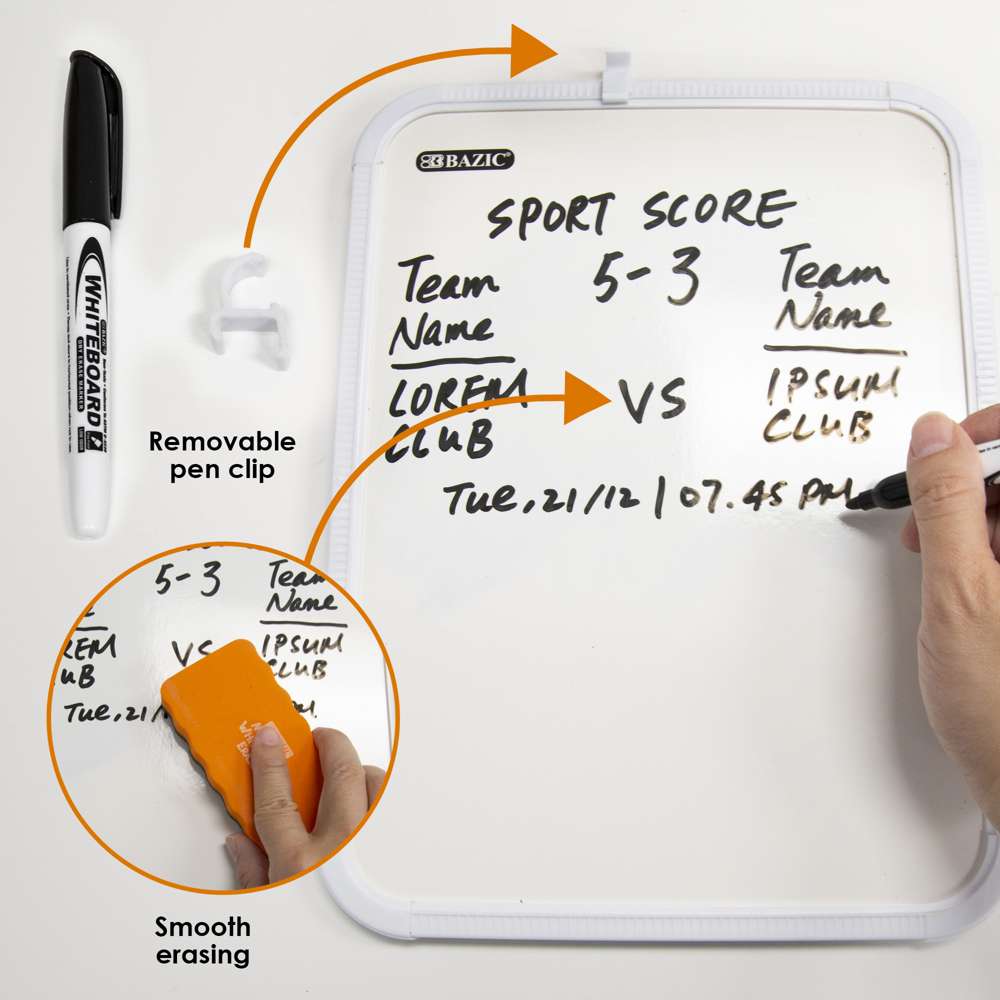 BAZIC
SPORT SCORE
Team 5-3 Team
Name Name
LOREM VS IPSUM
CLUB CLUB
Tue, 21/12 | 07.45 PM
BAZIC
WHITEBOARD
DRY ERASE MARKER
Removable
pen clip
5-3 Team
Name
REM VS IPSUM
UB CLUB
Tue, 21/
Smooth
erasing